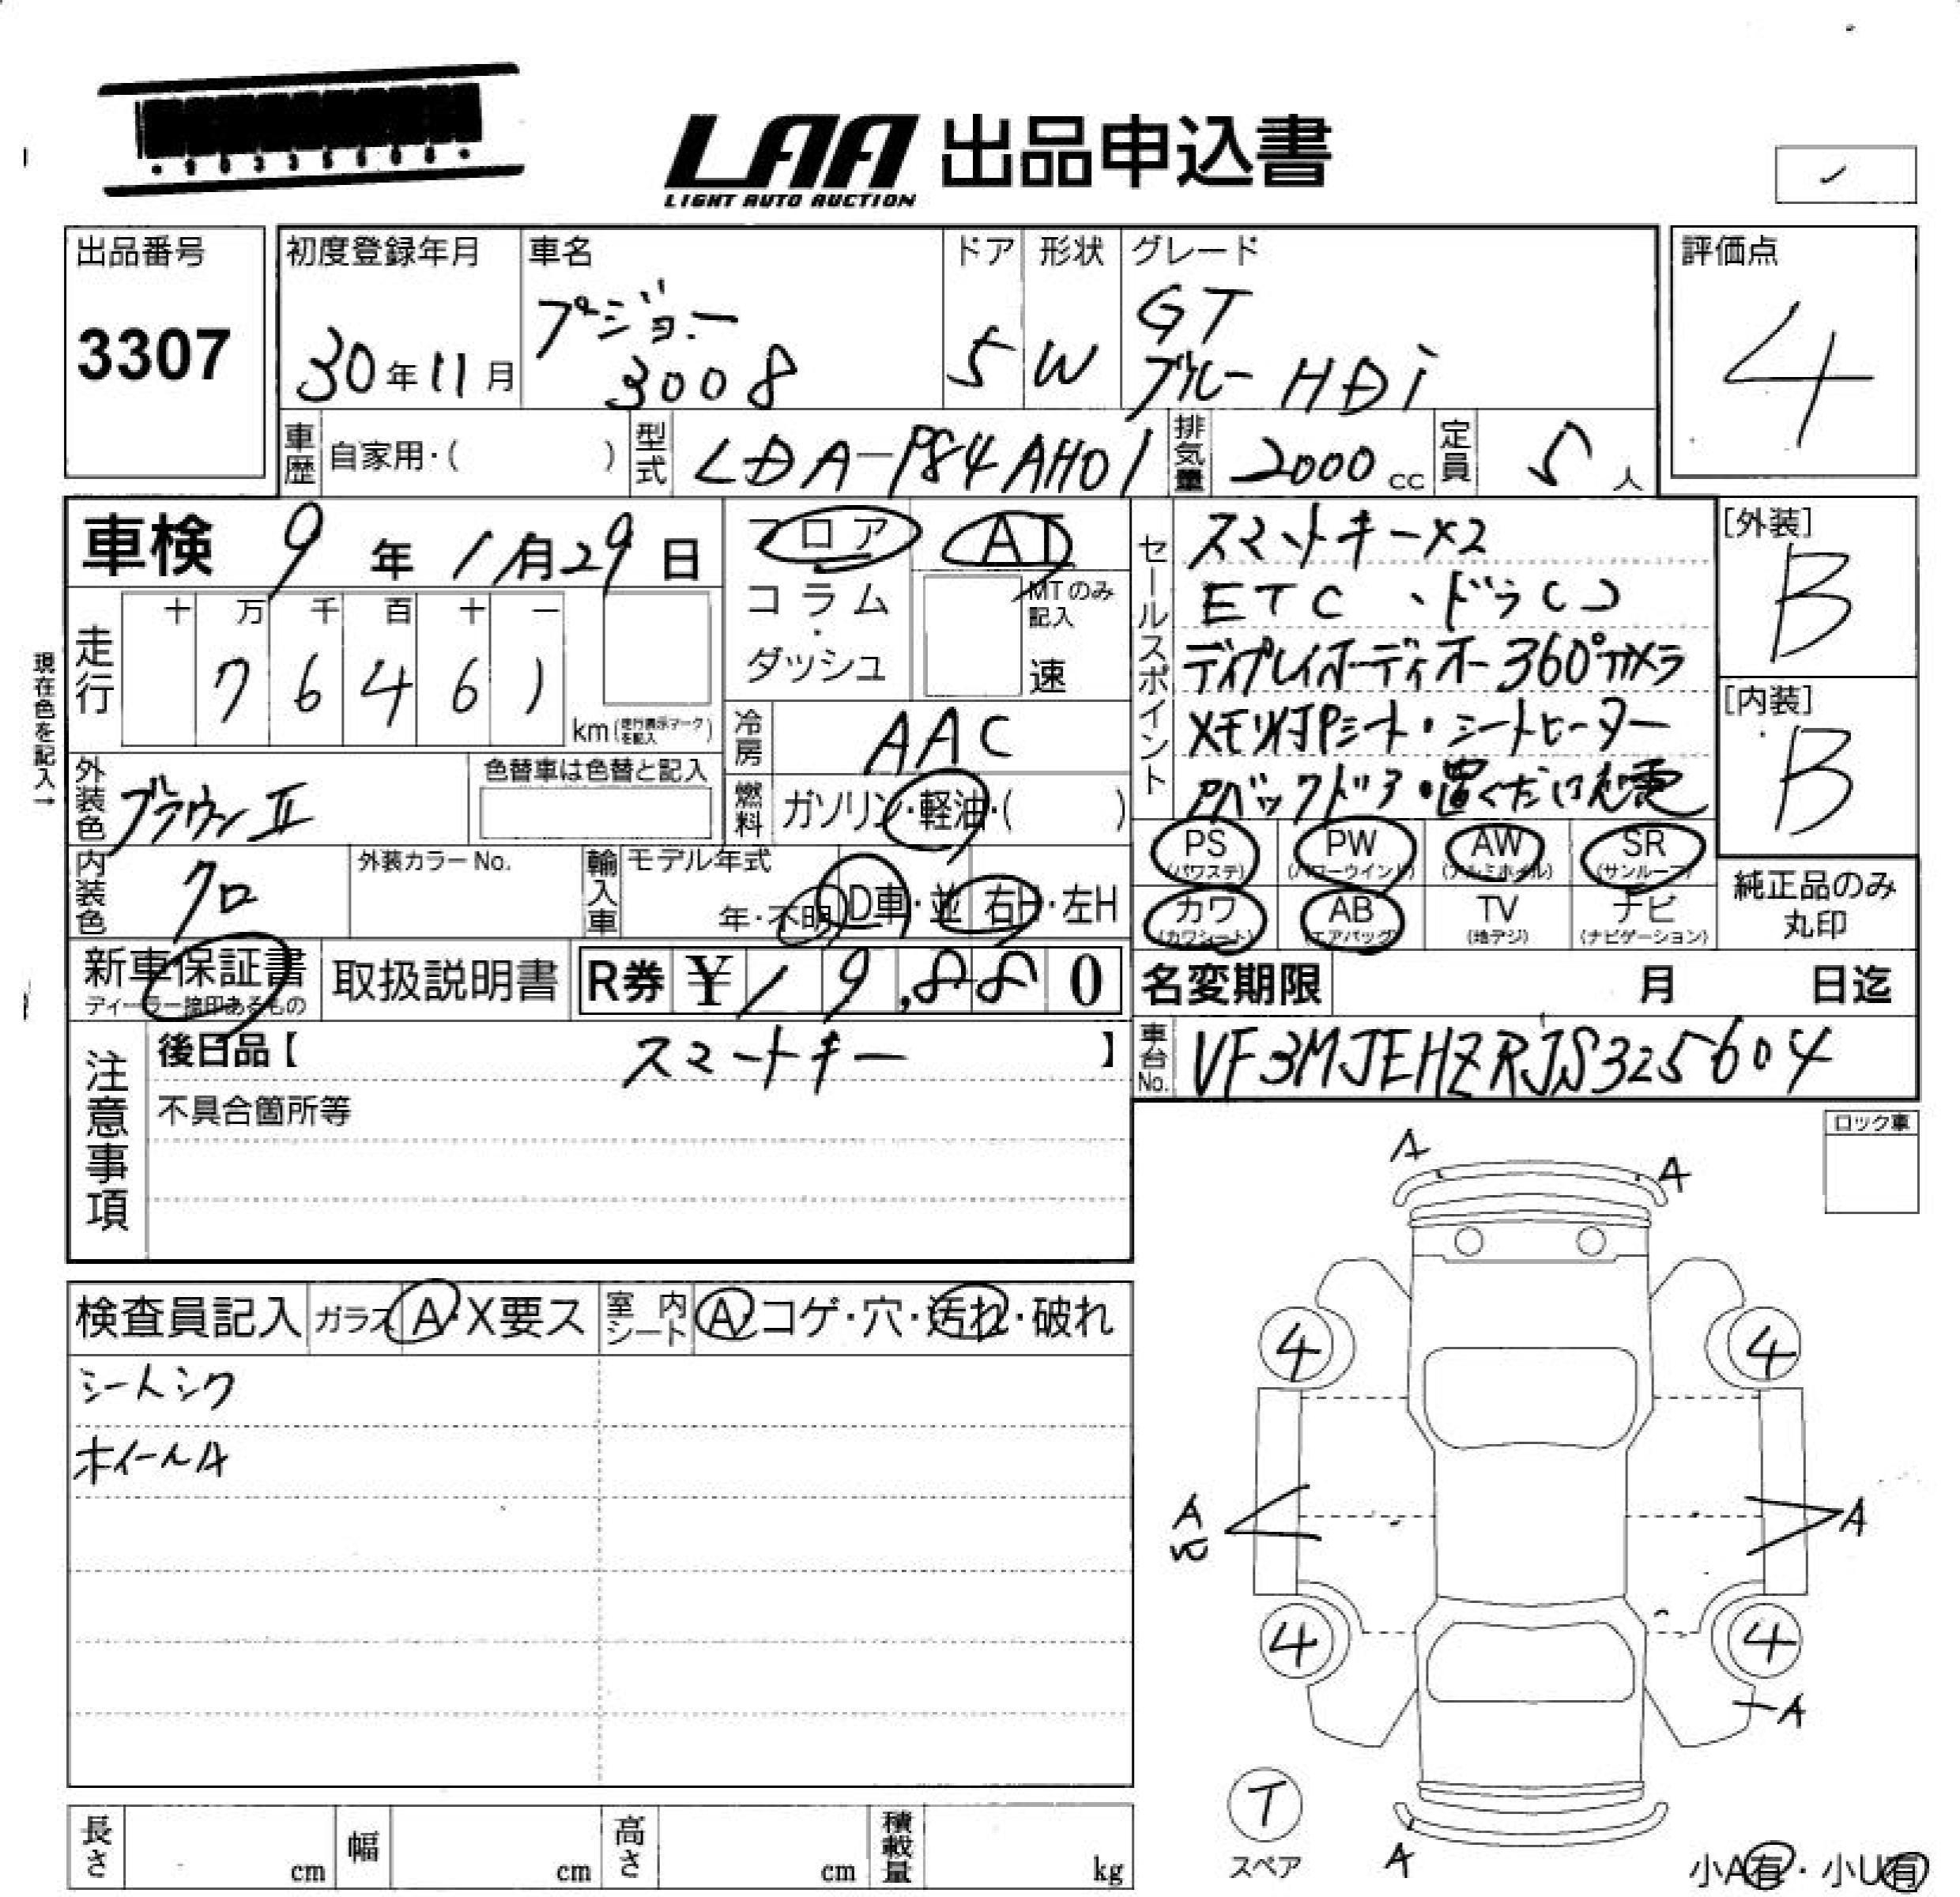 LAA 出品申込書
LIGHT AUTO AUCTION
出品番号
3307
初度登録年月
30年11月
車名
プジョー
3008
ドア
5
形状
W
グレード
GT
ブルーHDi
評価点
4
車歴 自家用・( )
型式 LDA-P84AH01
排気量 2000cc
定員 5人
車検 9年1月29日
現在色を記入→
走行
十 万 千 百 十 一
7 6 4 6 1
km(走行表示マークを記入)
フロア
コラム
・
ダッシュ
AT
MTのみ
記入
速
冷房 AAC
燃料 ガソリン・軽油・( )
外装色 ブラウンII
色替車は色替と記入
内装色 クロ
外装カラーNo.
輸入車
モデル年式
年・不明
D車・並
右H・左H
セールスポイント
スマートキー×2
ETC、ドラレコ
ディスプレイオーディオー360°カメラ
メモリ付Pシート・シートヒーター
Pバックドア・置くだけ充電
[外装]
B
[内装]
B
PS
(パワステ)
PW
(パワーウインド)
AW
(アルミホイル)
SR
(サンルーフ)
カワ
(カワシート)
AB
(エアバッグ)
TV
(地デジ)
ナビ
(ナビゲーション)
純正品のみ
丸印
新車保証書
ディーラー捺印あるもの
取扱説明書
R券 ¥19,880
名変期限 月 日迄
車台No. VF3MJEHZRJS325604
注意事項
後日品【 スマートキー 】
不具合箇所等
ロック車
検査員記入
ガラス A・X要ス
室内シート A・コゲ・穴・汚れ・破れ
シートシワ
ホイールA
A
A
4
4
A
A
4
4
A
T
スペア
A
小A有・小U有
長さ cm
幅 cm
高さ cm
積載量 kg